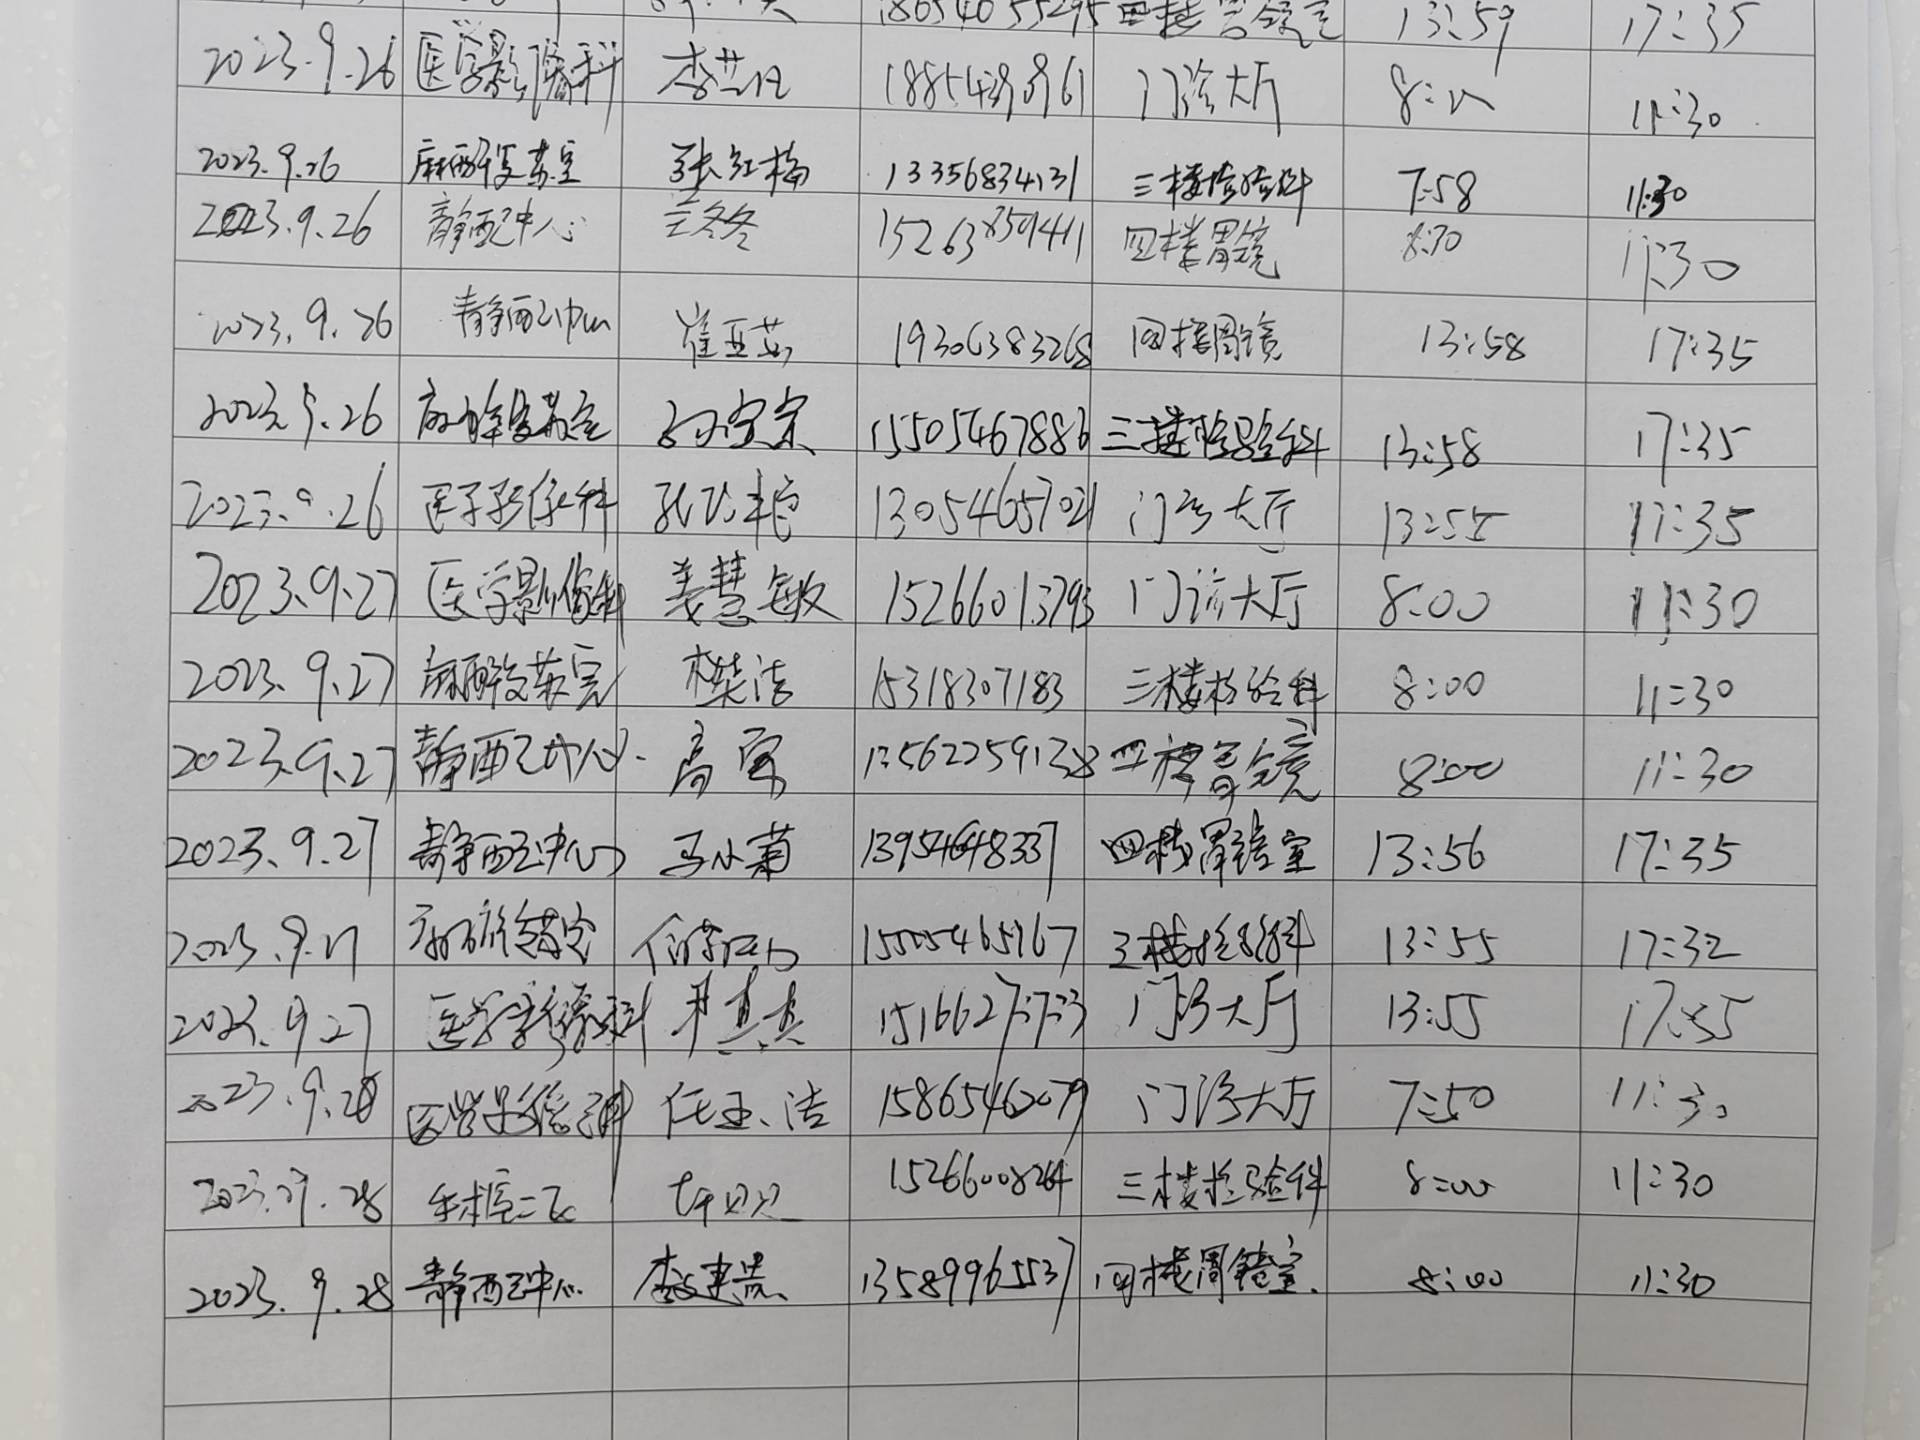 18654655295 四楼胃镜室 13:59 17:35
2023.9.26 医学影像科 18854398961 门诊大厅 11:30
2023.9.26 麻醉复苏室 张红梅 13356834131 三楼检验科 7:58 11:30
2023.9.26 静配中心 兰冬冬 15263859411 四楼胃镜 8:30 11:30
2023.9.26 静配中心 崔亚茹 19306383268 四楼胃镜 13:58 17:35
2023.9.26 麻醉复苏室 15505467886 三楼检验科 13:58 17:35
2023.9.26 医学影像科 13054657021 门诊大厅 13:55 17:35
2023.9.27 医学影像科 姜慧敏 15266013793 门诊大厅 8:00 11:30
2023.9.27 麻醉复苏室 樊洁 15318307183 三楼检验科 8:00 11:30
2023.9.27 静配中心 高寒 13562259138 四楼胃镜 8:00 11:30
2023.9.27 静配中心 马小菊 13954648337 四楼胃镜室 13:56 17:35
2023.9.27 麻醉复苏室 15505465767 三楼检验科 13:55 17:32
2023.9.27 医学影像科 尹真真 15166277173 门诊大厅 13:55 17:35
2023.9.28 医学影像科 任玉洁 15865462079 门诊大厅 7:50 11:30
2023.9.28 15266008264 三楼检验科 8:00 11:30
2023.9.28 静配中心 李建贵 13589965537 四楼胃镜室. 8:00 11:30